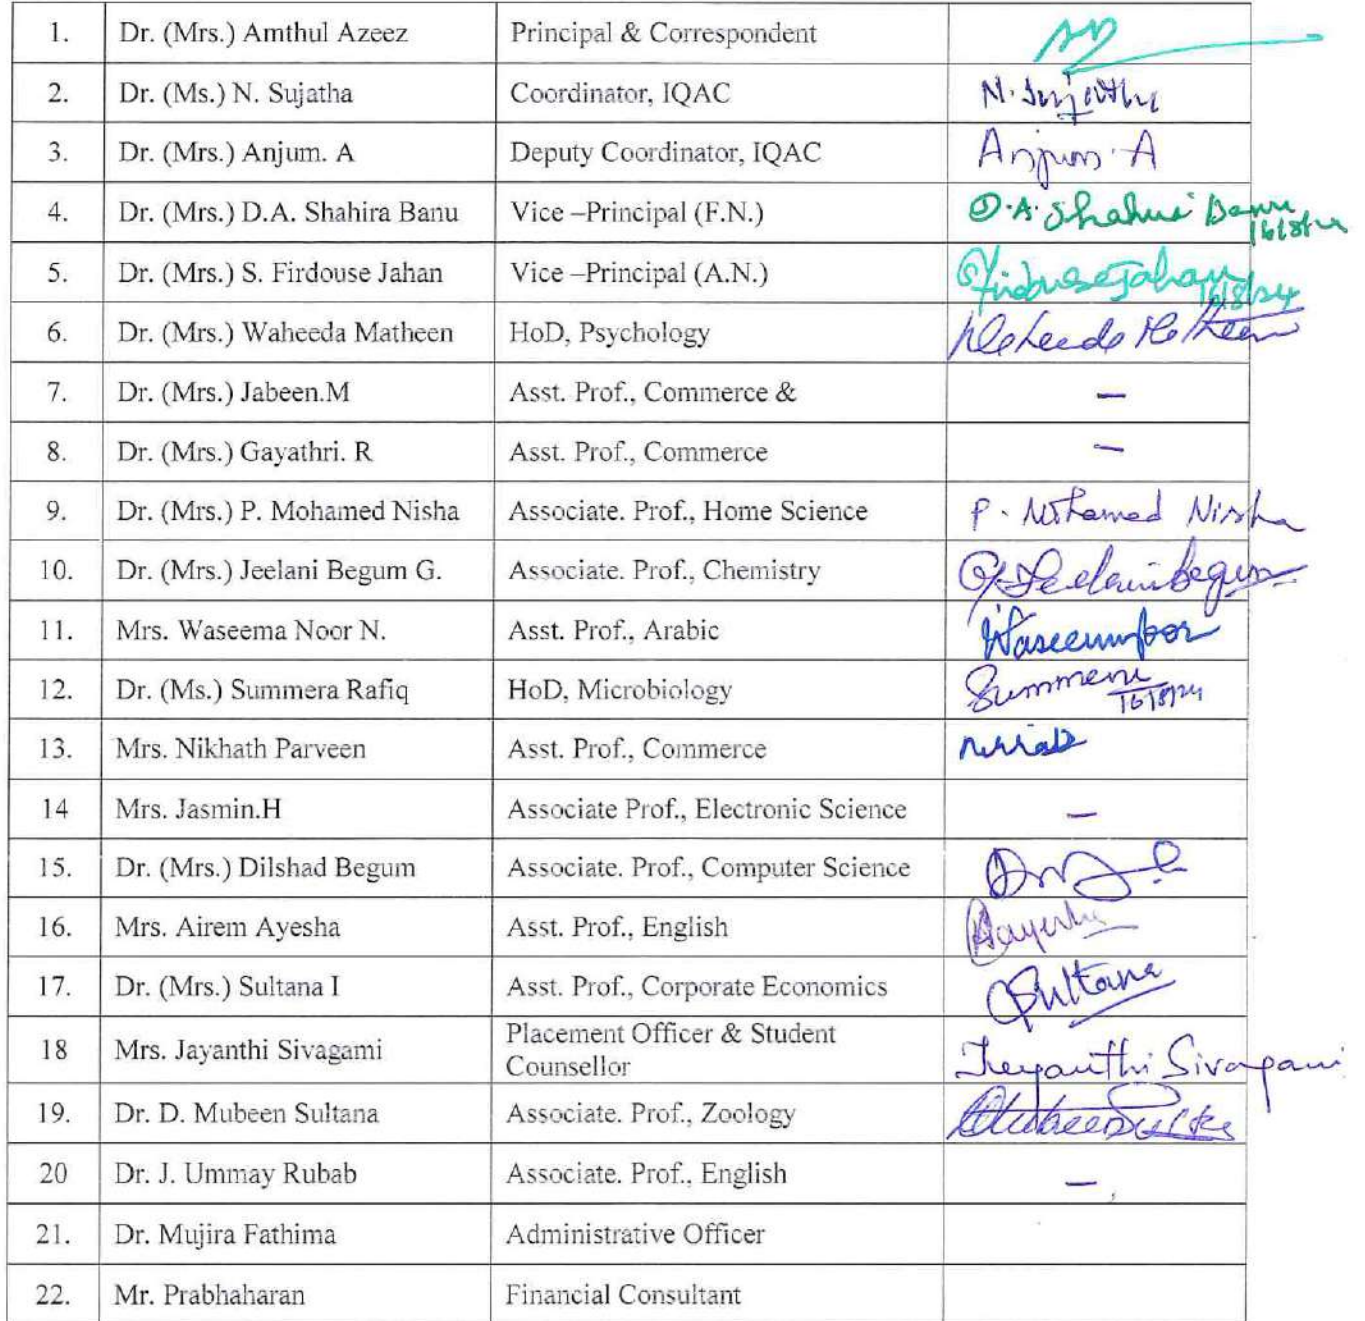 1. Dr. (Mrs.) Amthul Azeez Principal & Correspondent
2. Dr. (Ms.) N. Sujatha Coordinator, IQAC N. Sujatha
3. Dr. (Mrs.) Anjum. A Deputy Coordinator, IQAC Anjum. A
4. Dr. (Mrs.) D.A. Shahira Banu Vice –Principal (F.N.) D.A. Shahira Banu
16/8/24
5. Dr. (Mrs.) S. Firdouse Jahan Vice –Principal (A.N.) S. Firdouse Jahan
16/8/24
6. Dr. (Mrs.) Waheeda Matheen HoD, Psychology Waheeda Matheen
7. Dr. (Mrs.) Jabeen.M Asst. Prof., Commerce & –
8. Dr. (Mrs.) Gayathri. R Asst. Prof., Commerce –
9. Dr. (Mrs.) P. Mohamed Nisha Associate. Prof., Home Science P. Mohamed Nisha
10. Dr. (Mrs.) Jeelani Begum G. Associate. Prof., Chemistry G. Jeelani Begum
11. Mrs. Waseema Noor N. Asst. Prof., Arabic
12. Dr. (Ms.) Summera Rafiq HoD, Microbiology Summera
16/8/24
13. Mrs. Nikhath Parveen Asst. Prof., Commerce
14 Mrs. Jasmin.H Associate Prof., Electronic Science –
15. Dr. (Mrs.) Dilshad Begum Associate. Prof., Computer Science
16. Mrs. Airem Ayesha Asst. Prof., English Aayesha
17. Dr. (Mrs.) Sultana I Asst. Prof., Corporate Economics Sultana
18 Mrs. Jayanthi Sivagami Placement Officer & Student
Counsellor Jeyanthi Sivagami
19. Dr. D. Mubeen Sultana Associate. Prof., Zoology
20 Dr. J. Ummay Rubab Associate. Prof., English –
21. Dr. Mujira Fathima Administrative Officer
22. Mr. Prabhaharan Financial Consultant